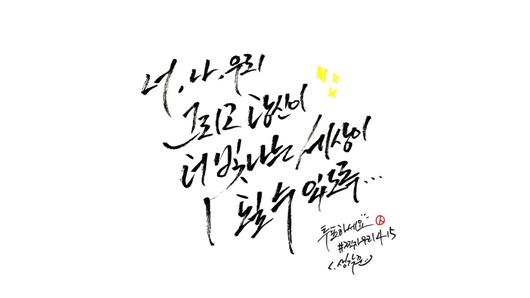 너, 나, 우리
그리고 당신이
더 빛나는 세상이
될 수 있도록...
투표하세요
4.15